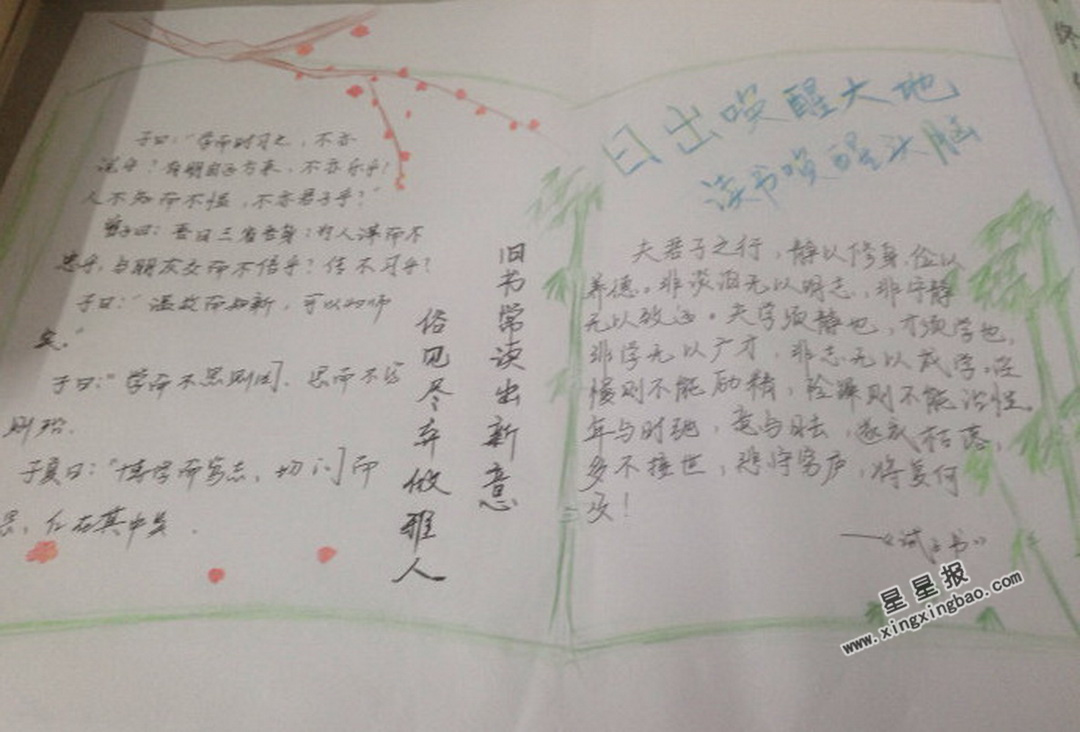 日出唤醒大地
读书唤醒头脑
子曰："学而时习之，不亦
说乎？有朋自远方来，不亦乐乎！
人不知而不愠，不亦君子乎？"
曾子曰：吾日三省吾身：为人谋而不
忠乎，与朋友交而不信乎？传不习乎？
子曰："温故而知新，可以为师
矣。"
子曰："学而不思则罔，思而不学
则殆.
子夏曰："博学而笃志，切问而
思，仁在其中矣.
旧书常读出新意
俗见尽弃做雅人
夫君子之行，静以修身，俭以
养德。非淡泊无以明志，非宁静
无以致远。夫学须静也，才须学也，
非学无以广才，非志无以成学。淫
慢则不能励精，险躁则不能治性。
年与时驰，意与日去，遂成枯落，
多不接世，悲守穷庐，将复何
及！
——《诫子书》
星星报
www.xingxingbao.com